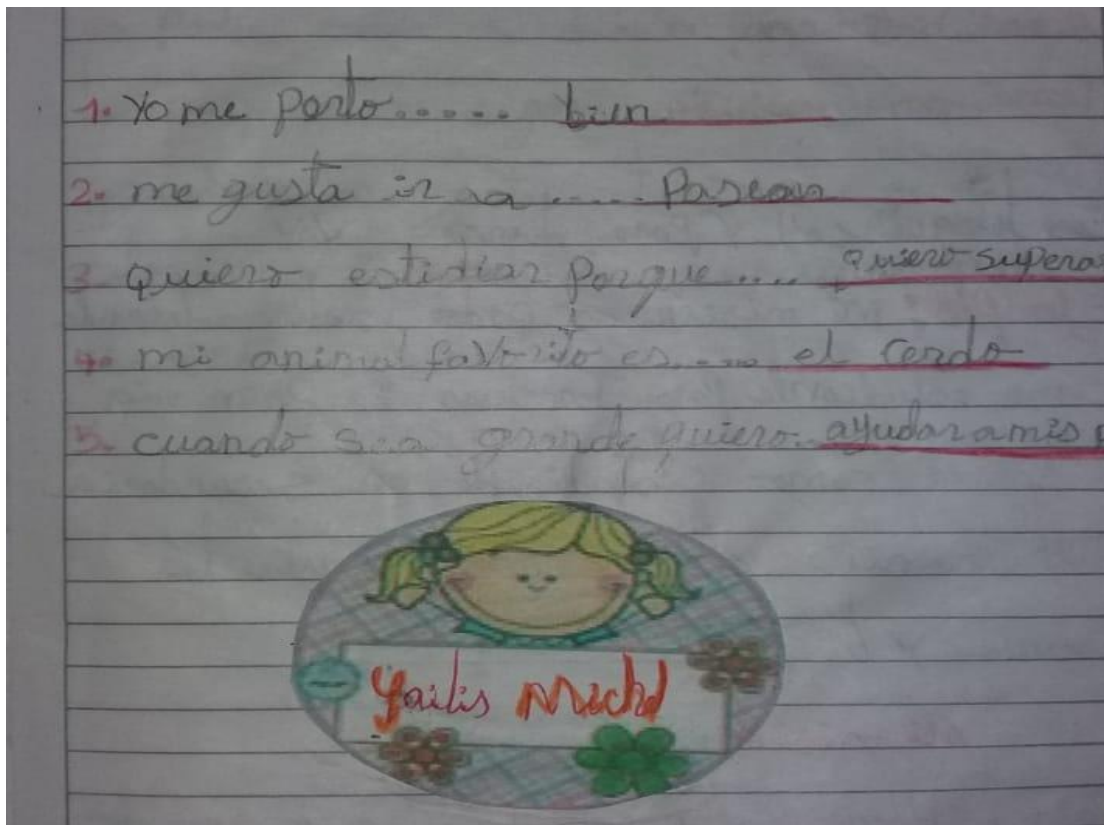 1. Yo me porto..... bien
2. me gusta ir a ..... Pasear
3. Quiero estidiar Porque .... quiero supera
4. mi animal favorito es.... el cerdo
5. cuando sea grande quiero. ayudar a mis
Yailis Michel